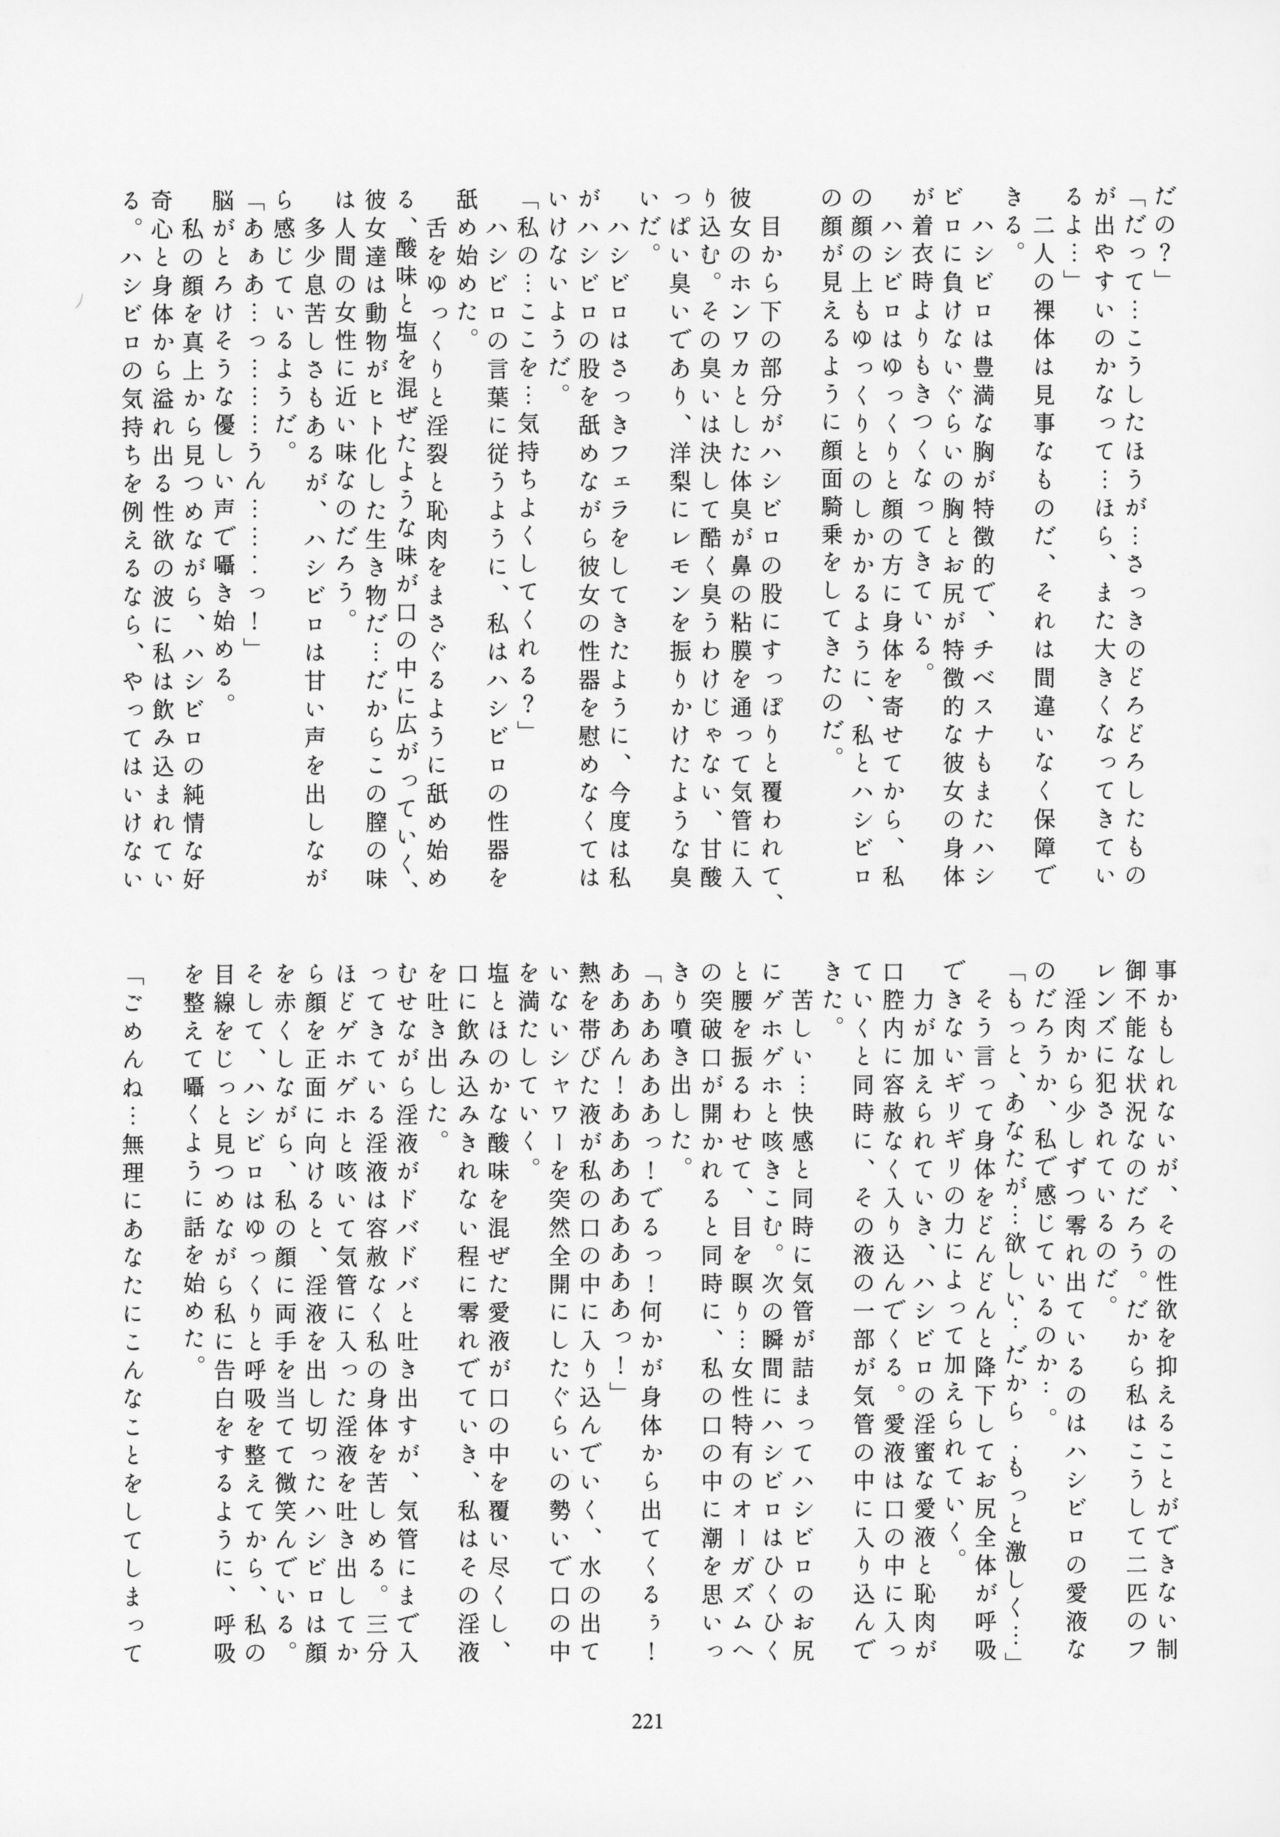 だの？」
「だって…こうしたほうが…さっきのどろどろしたもの
が出やすいのかなって…ほら、また大きくなってきてい
るよ…」
　二人の裸体は見事なものだ、それは間違いなく保障で
きる。
　ハシビロは豊満な胸が特徴的で、チベスナもまたハシ
ビロに負けないぐらいの胸とお尻が特徴的な彼女の身体
が着衣時よりもきつくなってきている。
　ハシビロはゆっくりと顔の方に身体を寄せてから、私
の顔の上もゆっくりとのしかかるように、私とハシビロ
の顔が見えるように顔面騎乗をしてきたのだ。
　目から下の部分がハシビロの股にすっぽりと覆われて、
彼女のホンワカとした体臭が鼻の粘膜を通って気管に入
り込む。その臭いは決して酷く臭うわけじゃない、甘酸
っぱい臭いであり、洋梨にレモンを振りかけたような臭
いだ。
　ハシビロはさっきフェラをしてきたように、今度は私
がハシビロの股を舐めながら彼女の性器を慰めなくては
いけないようだ。
「私の…ここを…気持ちよくしてくれる？」
　ハシビロの言葉に従うように、私はハシビロの性器を
舐め始めた。
　舌をゆっくりと淫裂と恥肉をまさぐるように舐め始め
る、酸味と塩を混ぜたような味が口の中に広がっていく、
彼女達は動物がヒト化した生き物だ…だからこの膣の味
は人間の女性に近い味なのだろう。
　多少息苦しさもあるが、ハシビロは甘い声を出しなが
ら感じているようだ。
「あぁあ…っ………うん………っ！」
脳がとろけそうな優しい声で囁き始める。
　私の顔を真上から見つめながら、ハシビロの純情な好
奇心と身体から溢れ出る性欲の波に私は飲み込まれてい
る。ハシビロの気持ちを例えるなら、やってはいけない
事かもしれないが、その性欲を抑えることができない制
御不能な状況なのだろう。だから私はこうして二匹のフ
レンズに犯されているのだ。
　淫肉から少しずつ零れ出ているのはハシビロの愛液な
のだろうか、私で感じているのか…。
「もっと、あなたが…欲しい…だから…もっと激しく…」
　そう言って身体をどんどんと降下してお尻全体が呼吸
できないギリギリの力によって加えられていく。
　力が加えられていき、ハシビロの淫蜜な愛液と恥肉が
口腔内に容赦なく入り込んでくる。愛液は口の中に入っ
ていくと同時に、その液の一部が気管の中に入り込んで
きた。
　苦しい…快感と同時に気管が詰まってハシビロのお尻
にゲホゲホと咳きこむ。次の瞬間にハシビロはひくひく
と腰を振るわせて、目を瞑り…女性特有のオーガズムへ
の突破口が開かれると同時に、私の口の中に潮を思いっ
きり噴き出した。
「ああああああっ！でるっ！何かが身体から出てくるぅ！
ああああん！ああああああああっ！」
熱を帯びた液が私の口の中に入り込んでいく、水の出て
いないシャワーを突然全開にしたぐらいの勢いで口の中
を満たしていく。
塩とほのかな酸味を混ぜた愛液が口の中を覆い尽くし、
口に飲み込みきれない程に零れでていき、私はその淫液
を吐き出した。
むせながら淫液がドバドバと吐き出すが、気管にまで入
ってきている淫液は容赦なく私の身体を苦しめる。三分
ほどゲホゲホと咳いて気管に入った淫液を吐き出してか
ら顔を正面に向けると、淫液を出し切ったハシビロは顔
を赤くしながら、私の顔に両手を当てて微笑んでいる。
そして、ハシビロはゆっくりと呼吸を整えてから、私の
目線をじっと見つめながら私に告白をするように、呼吸
を整えて囁くように話を始めた。
「ごめんね…無理にあなたにこんなことをしてしまって
221